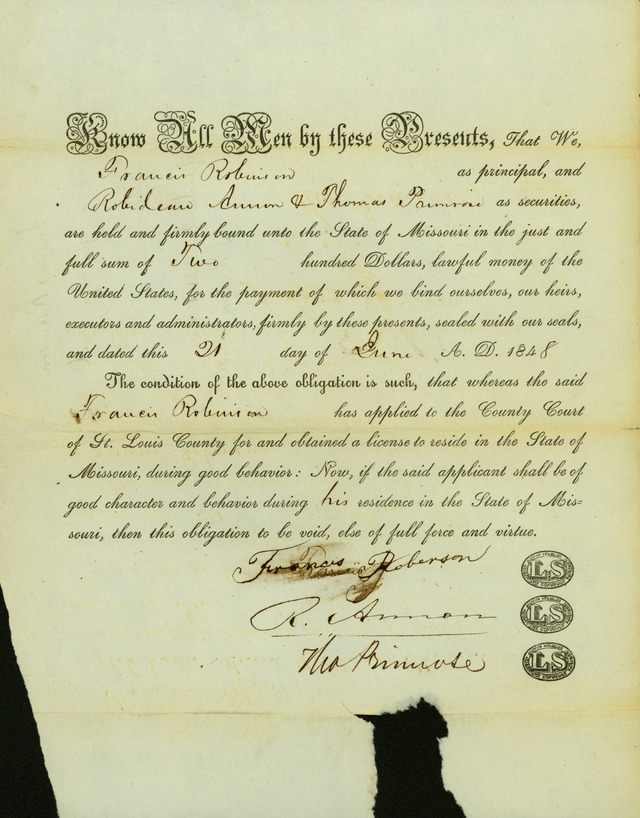 Know All Men by these Presents, That We,
Francis Robinson as principal, and
Robideau Annon & Thomas Primrose as securities,
are held and firmly bound unto the State of Missouri in the just and
full sum of Two hundred Dollars, lawful money of the
United States, for the payment of which we bind ourselves, our heirs,
executors and administrators, firmly by these presents, sealed with our seals,
and dated this 21 day of June A. D. 1848
The condition of the above obligation is such, that whereas the said
Francis Robinson has applied to the County Court
of St. Louis County for and obtained a license to reside in the State of
Missouri, during good behavior: Now, if the said applicant shall be of
good character and behavior during his residence in the State of Mis=
souri, then this obligation to be void, else of full force and virtue.
Francis Roberson LS
R. Annan LS
Tho Primrose LS